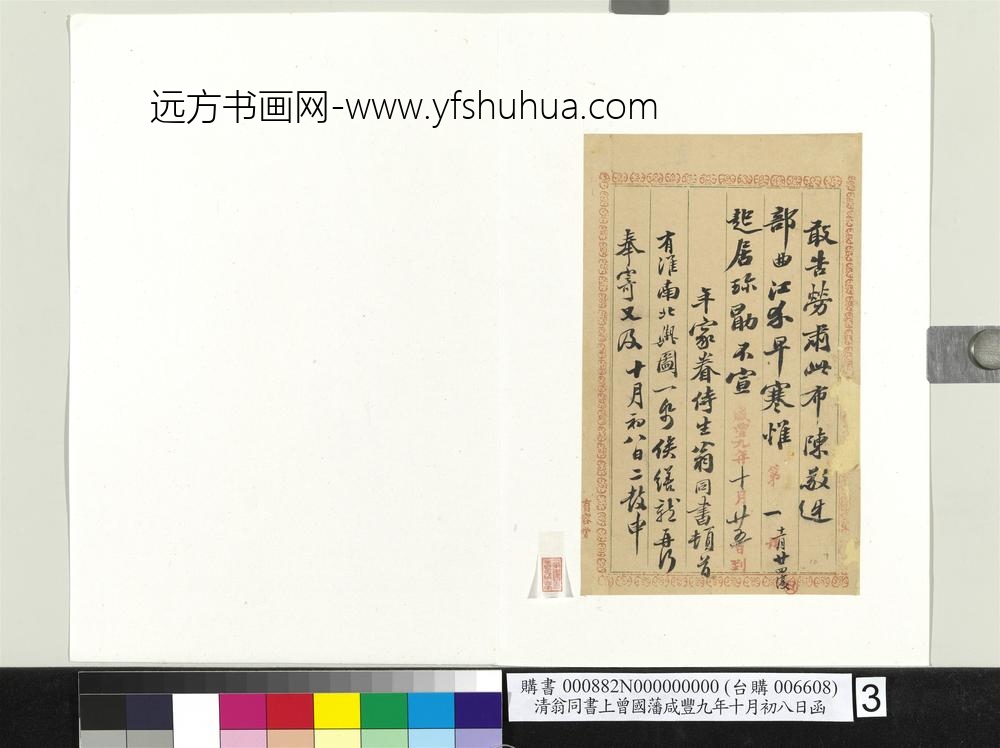 远方书画网-www.yfshuhua.com
敢告勞肅此布陳敬迓
部曲江永早寒惟
起居珍勖不宣
年家眷侍生翁同書頓首
有淮南北輿圖一分俟繕就再行
奉寄又及十月初八日二鼓申
咸豐九年十月廿五日到
第一
有容堂
購書 000882N000000000 (台購 006608)
清翁同書上曾國藩咸豐九年十月初八日函
3